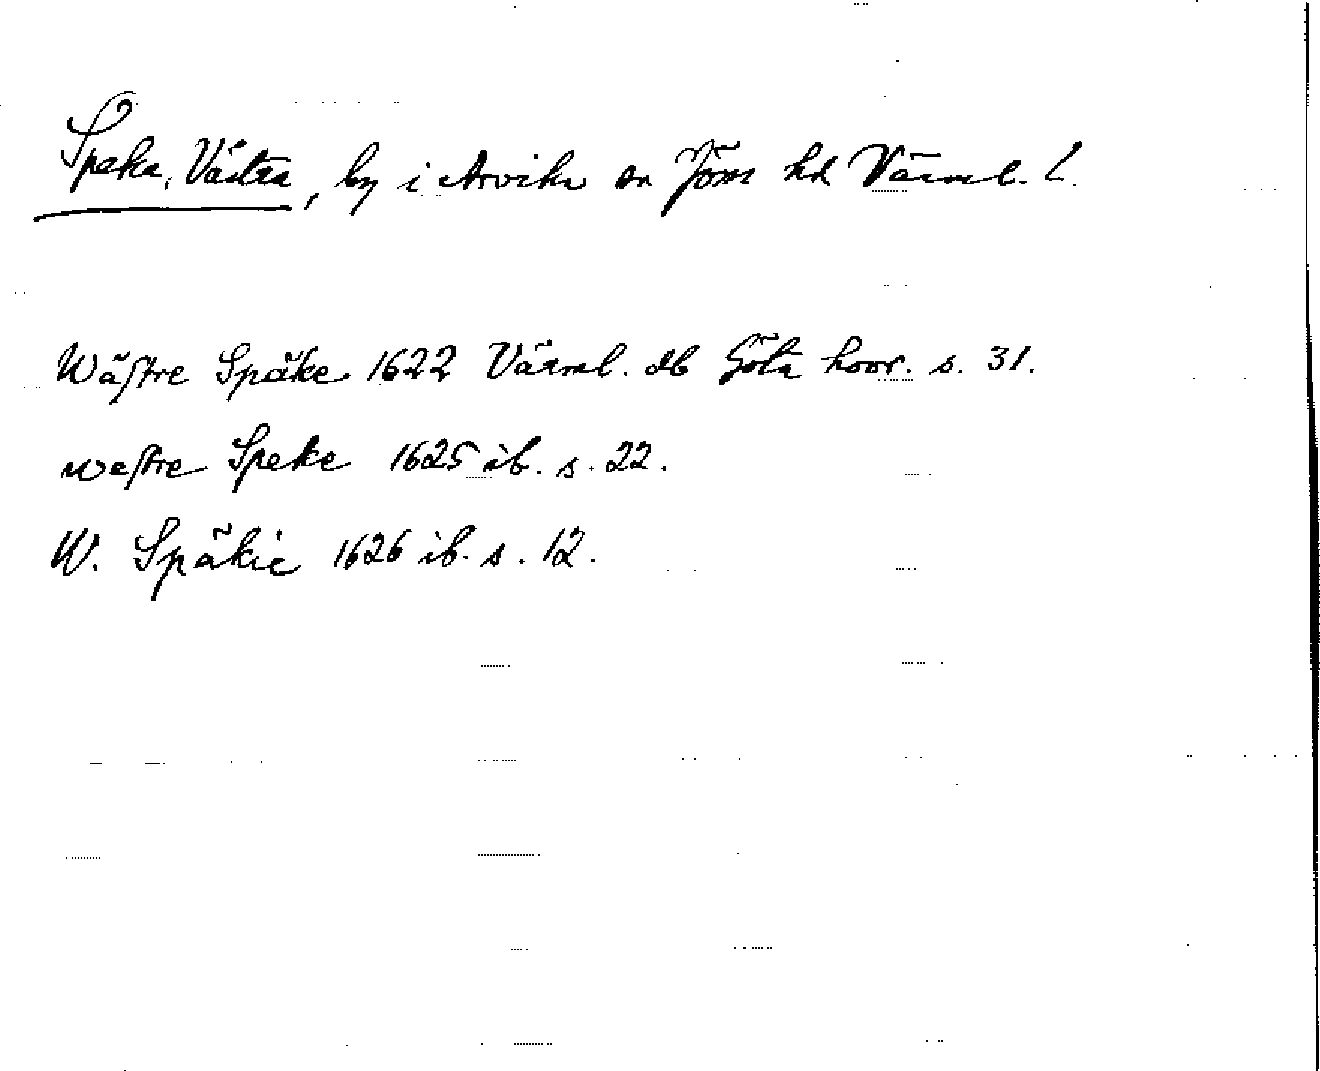 Speke, Västra, by i Arvika sn Jöss hd Värml. l.
Wästre Späke 1622 Värml. db Göta hovr. s. 31.
westre Speke 1625 ib. s. 22.
W. Späkie 1626 ib. s. 12.